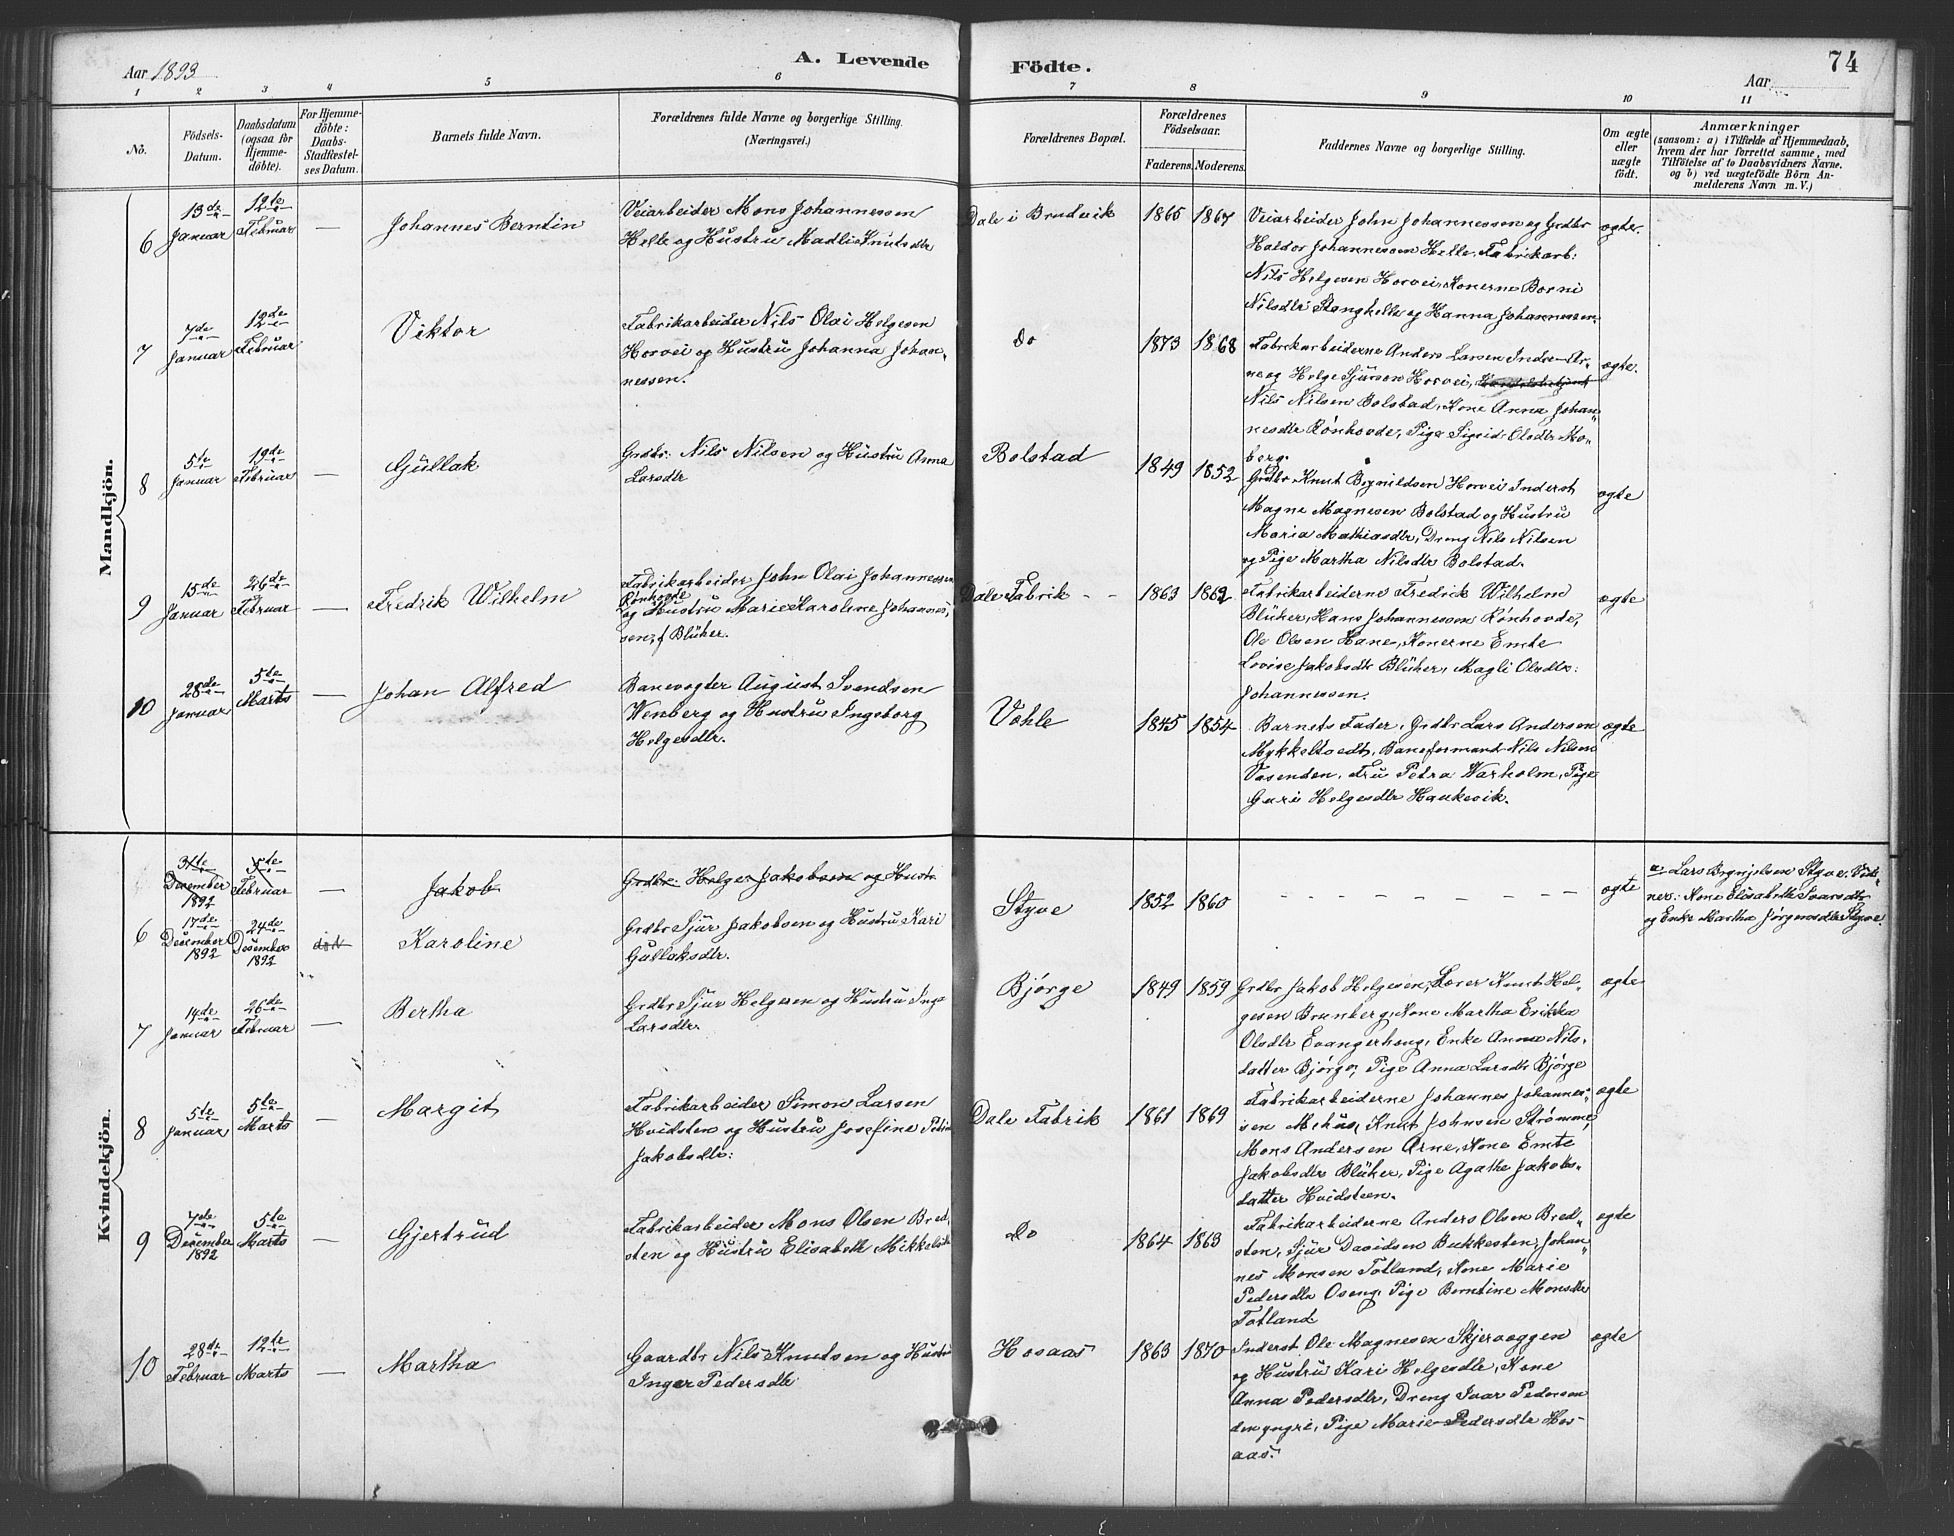 Aar 1893
A. Levende
Födte.
Aar
74
1 2 3 4 5 6 7 8 9 10 11
No.
Födsels-
Datum.
Daabsdatum
(ogsaa for
Hjemme-
döbte).
For Hjemme-
döbte:
Daabs-
Stadfæstel-
ses Datum.
Barnets fulde Navn.
Forældrenes fulde Navne og borgerlige Stilling.
(Næringsvei.)
Forældrenes Bopæl.
Forældrenes
Födselsaar.
Faderens. Moderens.
Faddernes Navne og borgerlige Stilling.
Om ægte
eller
uægte
födt.
Anmærkninger
(saasom: a) i Tilfælde af Hjemmedaab,
hvem der har forrettet samme, med
Tilföielse af to Daabsvidners Navne.
og b) ved uægtefödte Börn An-
melderens Navn m. V.)
Mandkjön.
6 13de Januar 12te Februar — Johannes Berntin
Veiarbeider Mons Johannessen
Helle og Hustru Madli Knutsdtr
Dale i Bruvik 1865 1867
Veiarbeider John Johannessen og Grdbr
Haldor Johannessen Helle, Fabrikarb:
Nils Helgesen Horvei, Konerne Borni
Nilsdtr Stanghelle og Hanna Johannessen.
ægte.
7 7de Januar 12de Februar Viktor
Fabrikarbeider Nils Olai Helgesen
Horvei og Hustru Johanna Johan-
nessen.
do 1873 1868
Fabrikarbeiderne Anders Larsen Indre-Ar-
ne og Helge Sjursen Horvei,
Nils Nilsen Bolstad, Kone Anna Johan-
nesdtr Rønhovde, Pige Sigrid Olsdtr Mo-
berg.
ægte.
8 5te Januar 19de Februar — Gullak
Grdbr: Nils Nilsen og Hustru Anna
Larsdtr
Bolstad 1849 1852
Grdbr Knut Brynildsen Horvei Inderst
Magne Magnesen Bolstad og Hustru
Maria Mathiasdtr, Dreng Nils Nilsen
og Pige Martha Nilsdtr Bolstad.
ægte
9 15de Januar 26de Februar — Fredrik Wilhelm
Fabrikarbeider John Olai Johannessen
Rønhovde
og Hustru Marie Karoline Johannes-
sen, f Blüher.
Dale Fabrik - - 1863 1862
Fabrikarbeiderne Fredrik Wilhelm
Blüher, Hans Johannessen Rønhovde,
Ole Olsen Hane, Konerne Emte
Lovise Jakobsdtr Blüher, Magli Olsdtr:
Johannessen.
ægte
10 28de Januar 5te Marts — Johan Alfred
Banevogter August Svendsen
Wenberg og Hustru Ingeborg
Helgesdtr.
Vohle 1845 1854
Barnets Fader, Grdbr Lars Andersen
Mykkeltvedt, Baneformand Nils Nilsen
Vasenden, Fru Petra Warholm, Pige
Guri Helgesdtr Haukevik.
ægte
Kvindekjön.
6 31te December 1892 5te Februar — Jakob
Grdbr Helge Jakobsen og Hustr
17de December 1892 24de December 1892 død Karoline
Grdbr Sjur Jakobsen og Hustru Kari
Gullaksdtr.
Styve 1852 1860
- - - - - - - -
ægte
a. Lars Brynjelsen Styve. Vid-
ner: Kone Elisabeth Ivarsdtr
og Enke Martha Jørgensdtr Styve.
7 14de Januar 26de Februar — Bertha
Grdbr Sjur Helgesen og Hustru Inga
Larsdtr.
Bjørge 1849 1859
Grdbr Jakob Helgesen, Lærer Knut Hel-
gesen Brunberg, Kone Martha Erikka
Olsdtr Evangerhaug, Enke Anna Nils-
datter Bjørge, Pige Anna Larsdtr Bjørge
ægte
8 5te Januar 5te Marts — Margit
Fabrikarbeider Simon Larsen
Hvidsten og Hustru Josefine Petrine
Jakobsdtr:
Dale Fabrik 1861 1869
Fabrikarbeiderne Johannes Johannes-
sen Mehus, Knut Johnsen Strømme,
Mons Andersen Arne, Kone Emte
Jakobsdtr Blüher, Pige Agathe Jakobs-
datter Hvidsteen.
ægte
9 7de December 1892 5te Marts — Gjertrud
Fabrikarbeider Mons Olsen Bred-
sten og Hustru Elisabeth Mikkelsdtr
do 1864 1863
Fabrikarbeiderne Anders Olsen Bred-
sten, Sjur Davidsen Bukkesten, Johan-
nes Monsen Totland, Kone Marie
Pedersdtr Oseng, Pige Berntine Monsdtr
Totland
ægte
10 28de Februar 12te Marts — Martha
Gaardbr Nils Knutsen og Hustru
Inger Pedersdtr
Hosaas 1863 1870
Inderst Ole Magnesen Skjervæggen
og Hustru Kari Helgesdtr, Kone
Anna Pedersdtr, Dreng Ivar Pedersen
den yngre, Pige Marie Pedersdtr Hos-
aas.
ægte